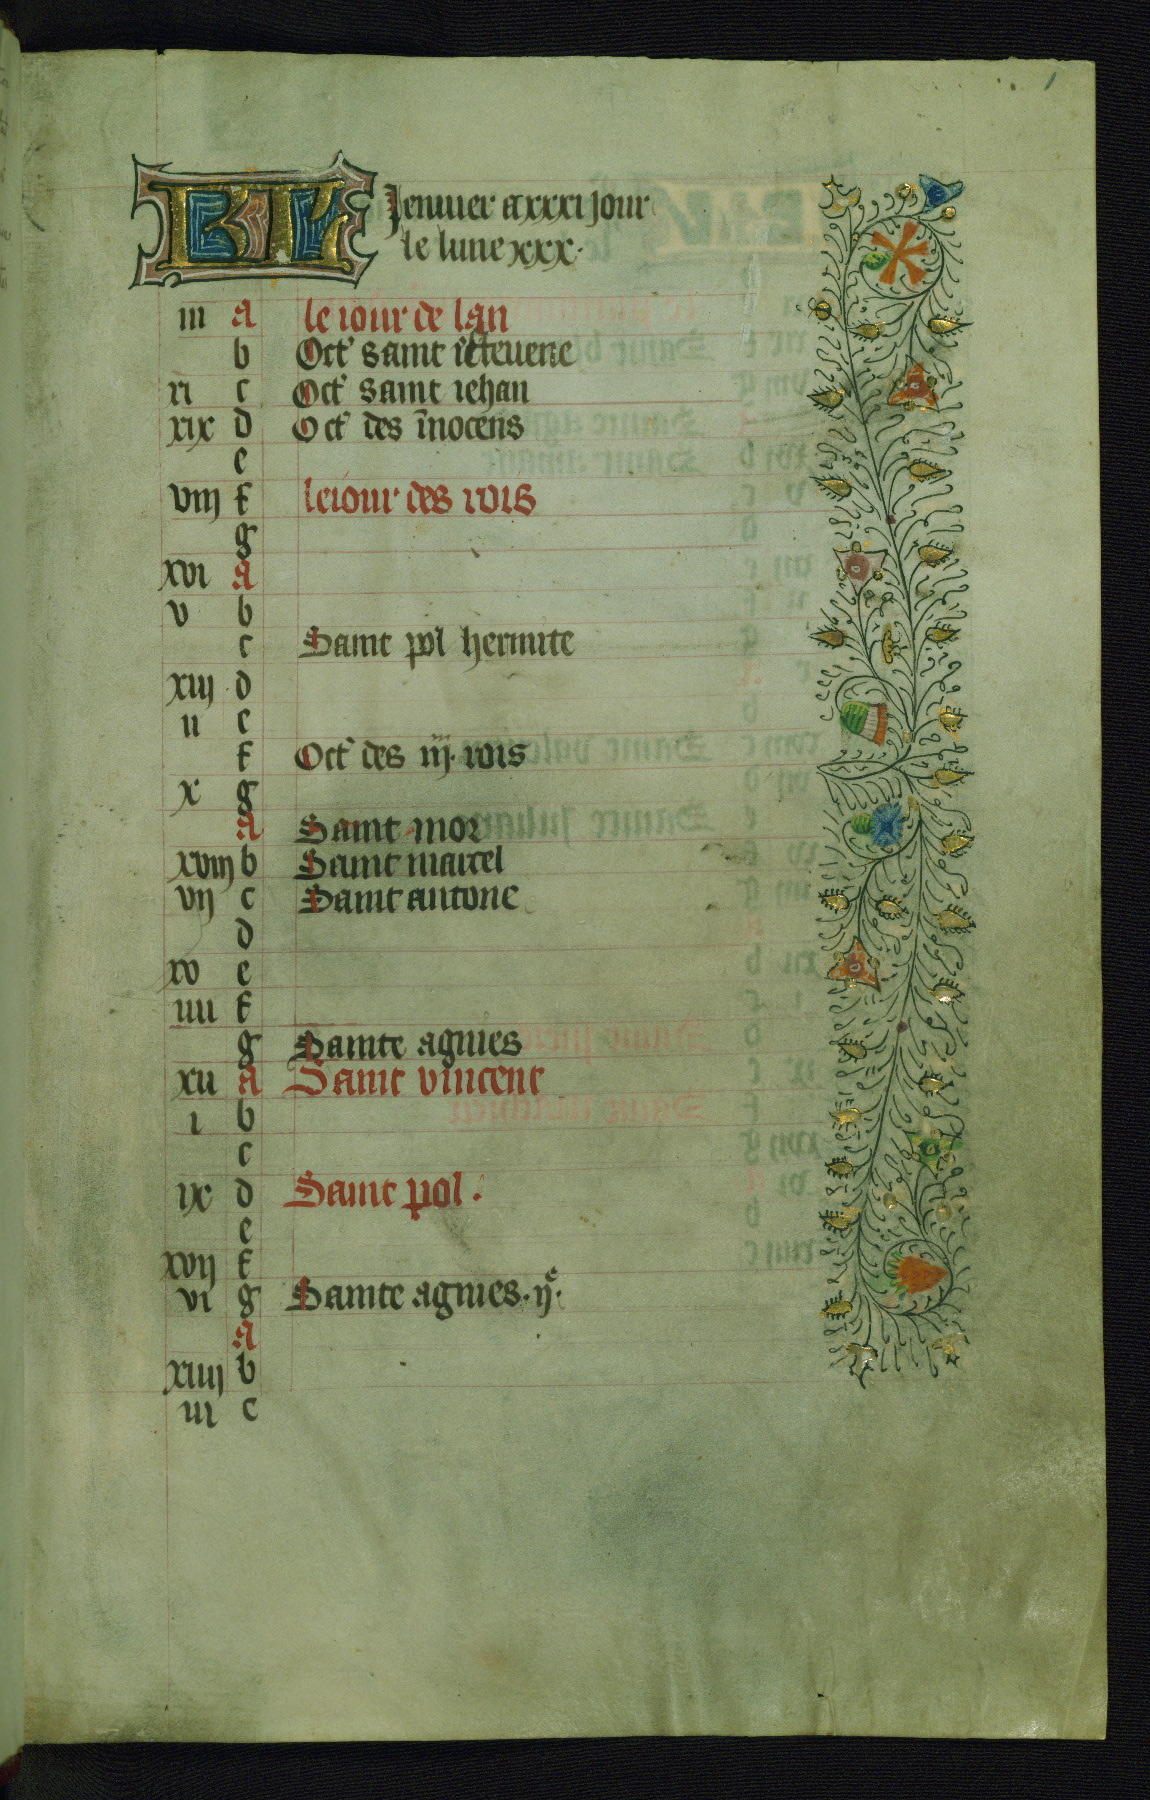 1
KL Jenuier a xxxi jour
le lune xxx.
iii a le iour de lan
b Oct' saint esteuene
xi c Oct' saint iehan
xix d Oct' des īnocens
e
viij f le iour des rois
g
xvi a
v b
c Saint pol hermite
xiij d
ii e
f Oct' des iij. rois
x g
a Saint mor
xviij b Saint marcel
vij c Saint antone
d
xv e
iiii f
g Sainte agnies
xii a Saint vincent
i b
c
ix d Saint pol.
e
xvij f
vi g Sainte agnies. ije.
a
xiiij b
iii c